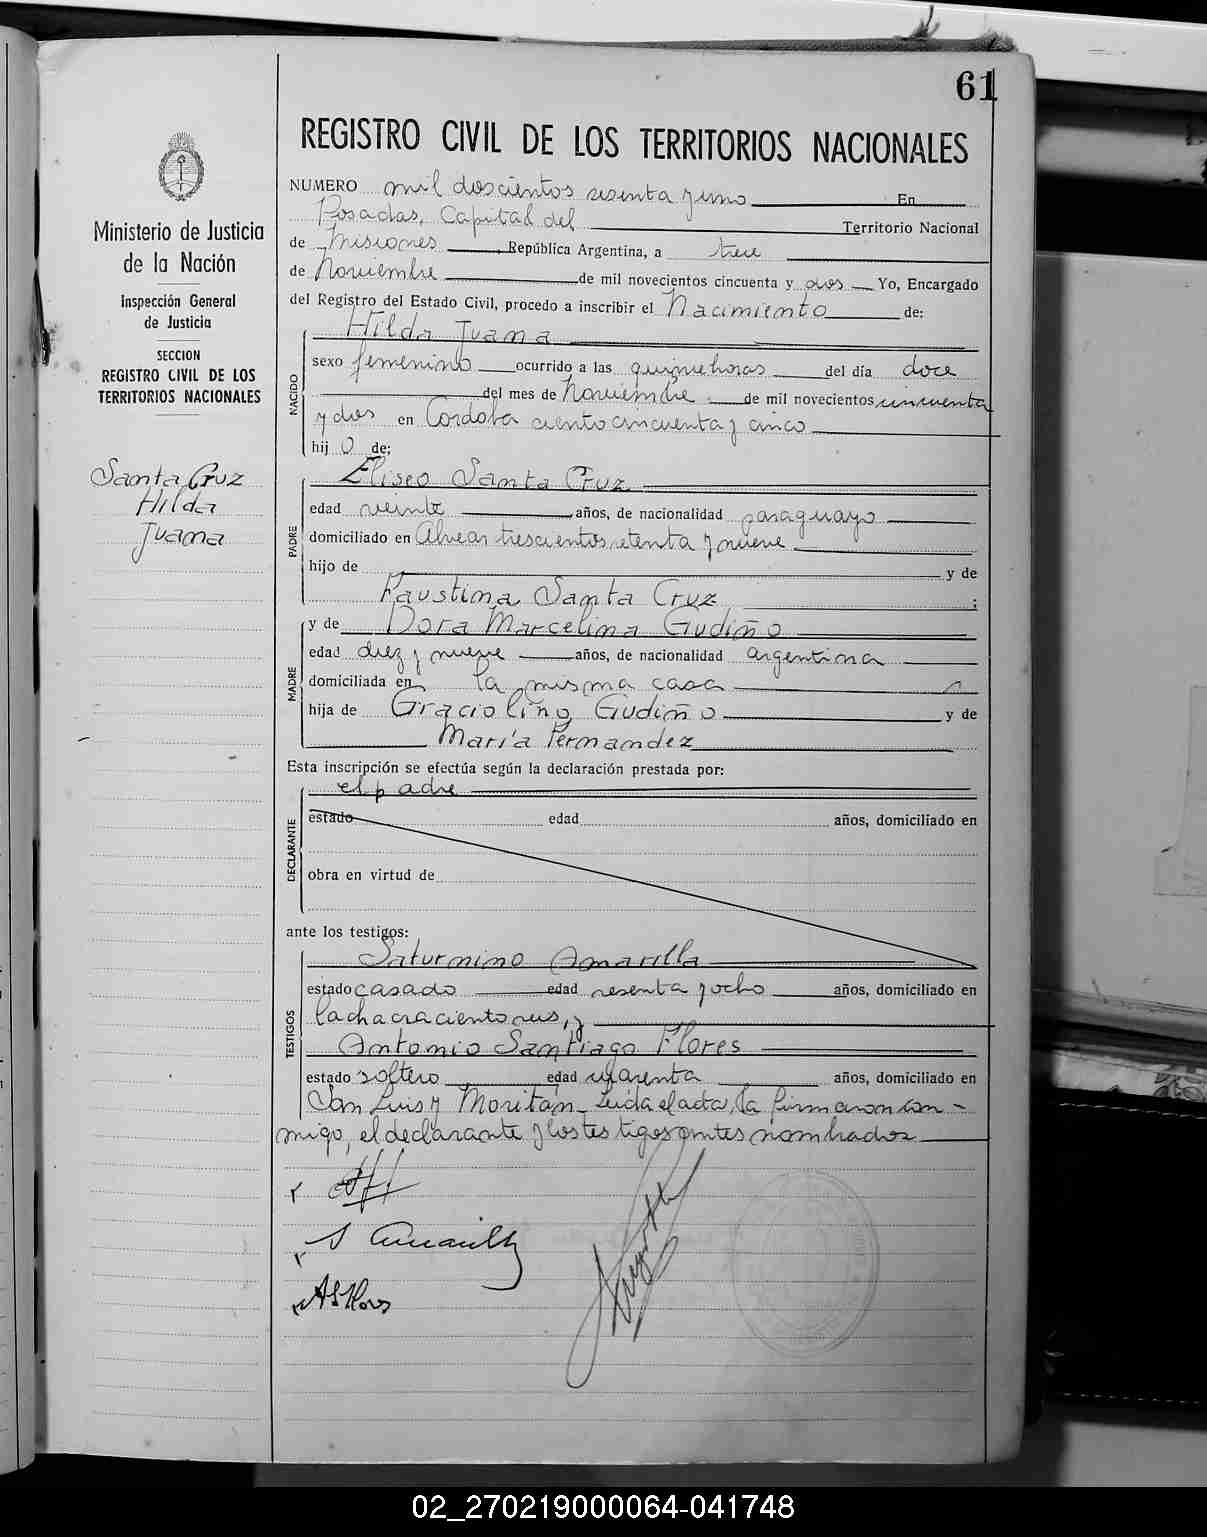 61
REGISTRO CIVIL DE LOS TERRITORIOS NACIONALES
Ministerio de Justicia
de la Nación
Inspección General
de Justicia
SECCION
REGISTRO CIVIL DE LOS
TERRITORIOS NACIONALES
Santa Cruz
Hilda
Juana
NUMERO mil doscientos sesenta y uno En
Posadas, Capital del Territorio Nacional
de Misiones, República Argentina, a trece
de Noviembre de mil novecientos cincuenta y dos Yo, Encargado
del Registro del Estado Civil, procedo a inscribir el Nacimiento de:
NACIDO
Hilda Juana
sexo femenino ocurrido a las quince horas del día doce
del mes de Noviembre de mil novecientos cincuenta
y dos en Cordoba ciento cincuenta y cinco
hij o de:
PADRE
Eliseo Santa Cruz
edad veinte años, de nacionalidad paraguayo
domiciliado en Alvear trescientos setenta y nueve
hijo de y de
Faustina Santa Cruz ;
MADRE
y de Dora Marcelina Gudiño
edad diez y nueve años, de nacionalidad argentina
domiciliada en la misma casa
hija de Graciolino Gudiño y de
María Fernandez
Esta inscripción se efectúa según la declaración prestada por:
DECLARANTE
el padre
estado edad años, domiciliado en
obra en virtud de
ante los testigos:
TESTIGOS
Saturnino Amarilla
estado casado edad sesenta y ocho años, domiciliado en
la chacra ciento seis, y
Antonio Santiago Flores
estado soltero edad cuarenta años, domiciliado en
San Luis y Moritán_ Leida el acta, la firmaron con-
migo, el declarante y los testigos antes nombrados
S Amarilla
A S Flores
02_270219000064-041748